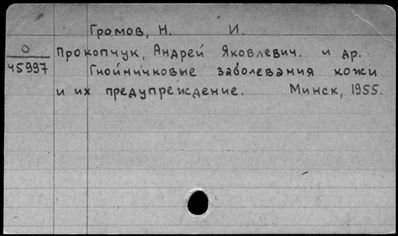 Громов, Н. И.
О
45997
Прокопчук, Андрей Яковлевич. и др.
Гнойничковые заболевания кожи
и их предупреждение. Минск, 1955.